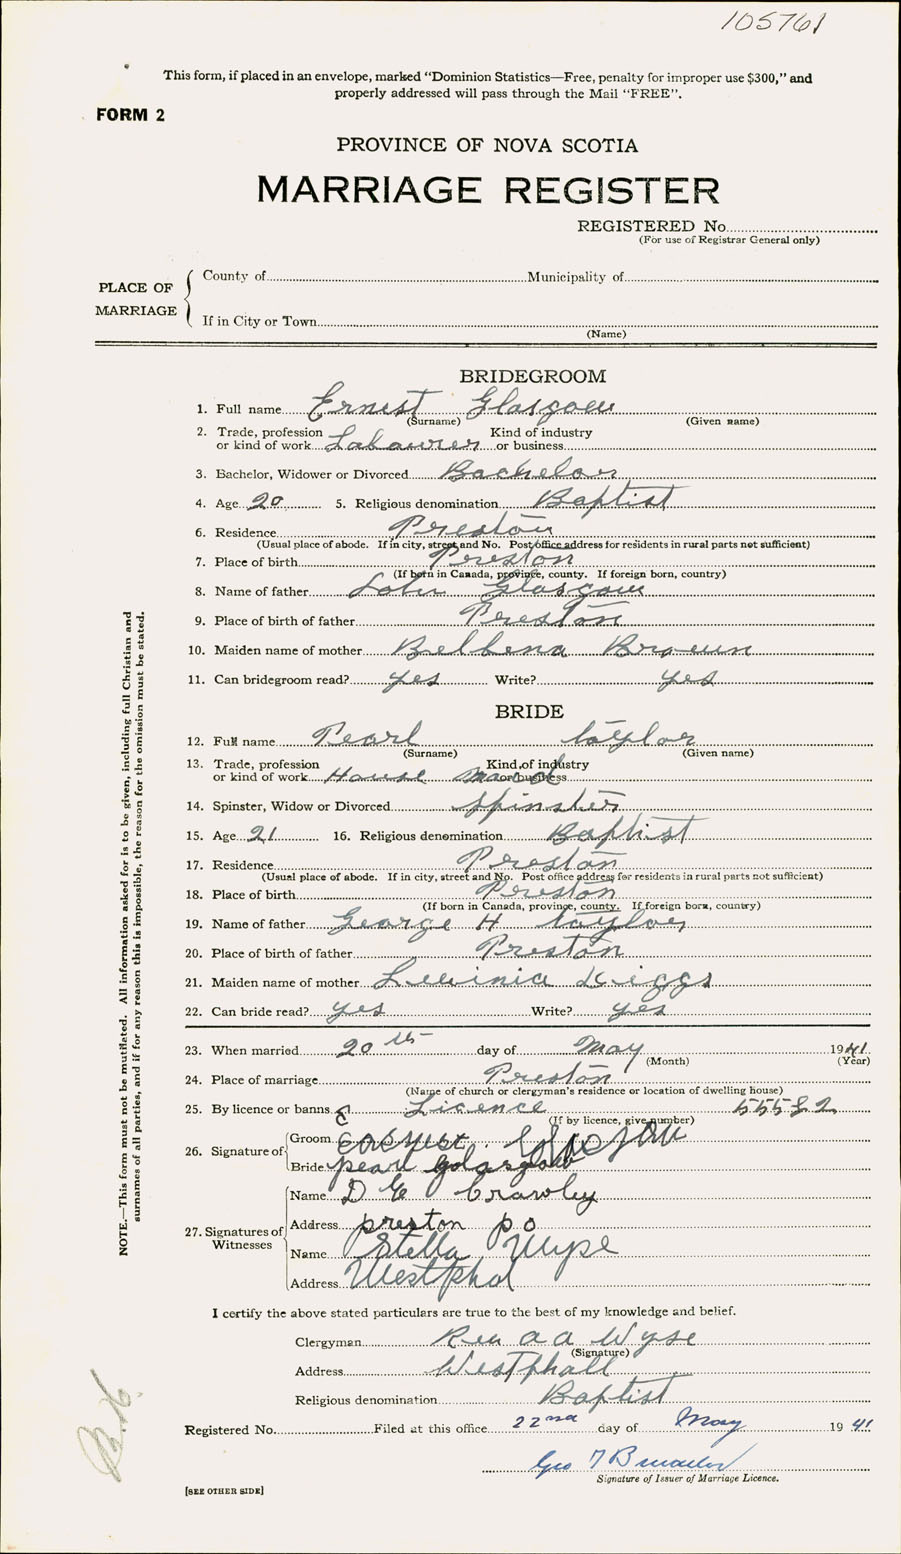 105761
This form, if placed in an envelope, marked “Dominion Statistics—Free, penalty for improper use $300,” and
properly addressed will pass through the Mail “FREE”.
FORM 2
PROVINCE OF NOVA SCOTIA
MARRIAGE REGISTER
REGISTERED No.
(For use of Registrar General only)
PLACE OF MARRIAGE
County of Municipality of
If in City or Town
(Name)
BRIDEGROOM
1. Full name Ernest Glasgow
(Surname) (Given name)
2. Trade, profession or kind of work Labourer Kind of industry or business
3. Bachelor, Widower or Divorced Bachelor
4. Age 20 5. Religious denomination Baptist
6. Residence Preston
(Usual place of abode. If in city, street and No. Post office address for residents in rural parts not sufficient)
7. Place of birth Preston
(If born in Canada, province, county. If foreign born, country)
8. Name of father John Glasgow
9. Place of birth of father Preston
10. Maiden name of mother Belhena Brown
11. Can bridegroom read? yes Write? yes
BRIDE
12. Full name Pearl taylor
(Surname) (Given name)
13. Trade, profession or kind of work House maid Kind of industry or business
14. Spinster, Widow or Divorced Spinster
15. Age 21 16. Religious denomination Baptist
17. Residence Preston
(Usual place of abode. If in city, street and No. Post office address for residents in rural parts not sufficient)
18. Place of birth Preston
(If born in Canada, province, county. If foreign born, country)
19. Name of father George H taylor
20. Place of birth of father Preston
21. Maiden name of mother Luvinia Diggs
22. Can bride read? yes Write? yes
23. When married 20th day of May 1941
(Month) (Year)
24. Place of marriage Preston
(Name of church or clergyman's residence or location of dwelling house)
25. By licence or banns Licence 55582
(If by licence, give number)
26. Signature of
Groom
Bride pearl
27. Signatures of Witnesses
Name D E Crawley
Address preston p o
Name Stella Wyse
Address Westphal
I certify the above stated particulars are true to the best of my knowledge and belief.
Clergyman Rev a a Wyse
(Signature)
Address Westphall
Religious denomination Baptist
Registered No. Filed at this office 22nd day of May 1941
Geo
Signature of Issuer of Marriage Licence.
[SEE OTHER SIDE]
NOTE.—This form must not be mutilated. All information asked for is to be given, including full Christian and
surnames of all parties, and if for any reason this is impossible, the reason for the omission must be stated.